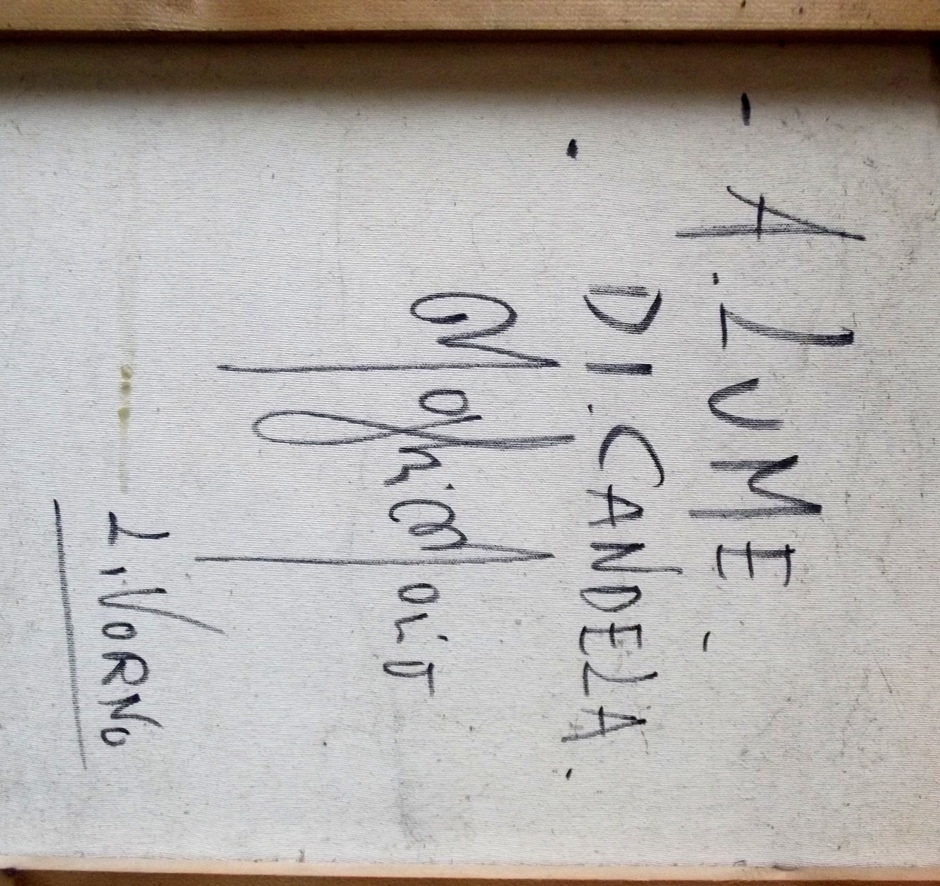 - A. LUME -
. DI. CANDELA.
LIVORNO